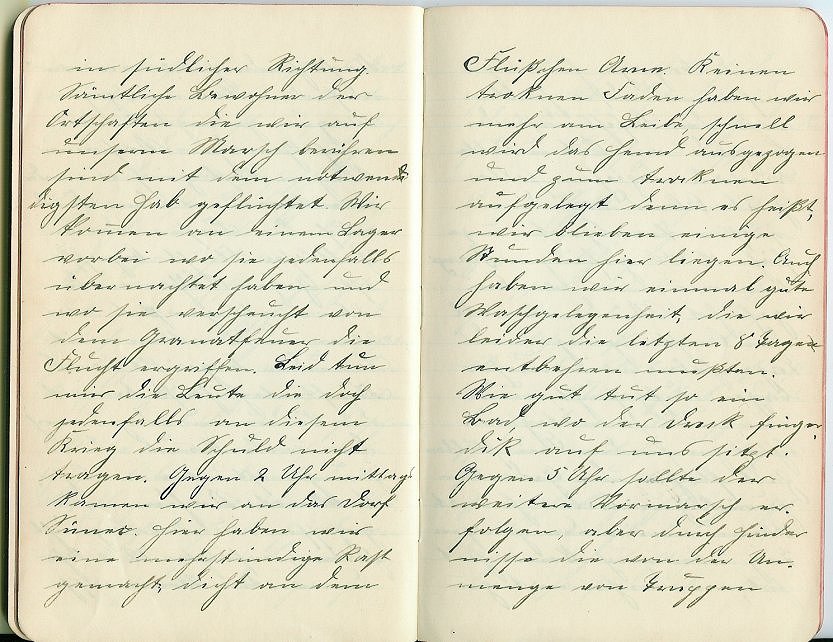 in südlicher Richtung.
Sämtliche Bewohner der
Ortschaften die wir auf
unserm Marsch berühren
sind mit dem notwen-
digsten Hab geflüchtet. Wir
komen an einem Lager
vorbei wo sie jedenfalls
übernachtet haben und
wo sie verscheucht von
dem Granatfeuer die
Flucht ergriffen. Leid tun
mir die Leute die doch
jedenfalls an diesem
Krieg die Schuld nicht
tragen. Gegen 2 Uhr mittags
kamen wir an das Dorf
hier haben wir
eine mehrstündige Rast
gemacht, dicht an dem
Flüßchen Arne. Keinen
troknen Faden haben wir
mehr am Leibe, schnell
wird das Hemd ausgezogen
und zum trocknen
aufgelegt denn es heißt,
wir blieben einige
Stunden hier liegen. Auch
haben wir einmal gute
Waschgelegenheit, die wir
leider die letzten 8 Tagen
entbehren mußten.
Wie gut tut so ein
Bad wo der Dreck finger-
dik auf uns sitzt.
Gegen 5 Uhr sollte der
weitere Vormarsch er-
folgen, aber durch Hinder
nisse die von der An-
menge von Truppen